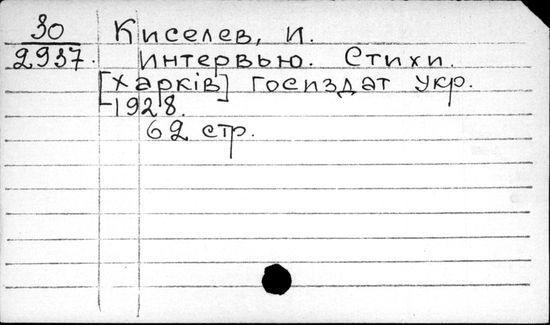 30
2937.
Киселев, И.
Интервью. Стихи.
[Харків] Госиздат Укр.
1928.
62 стр.